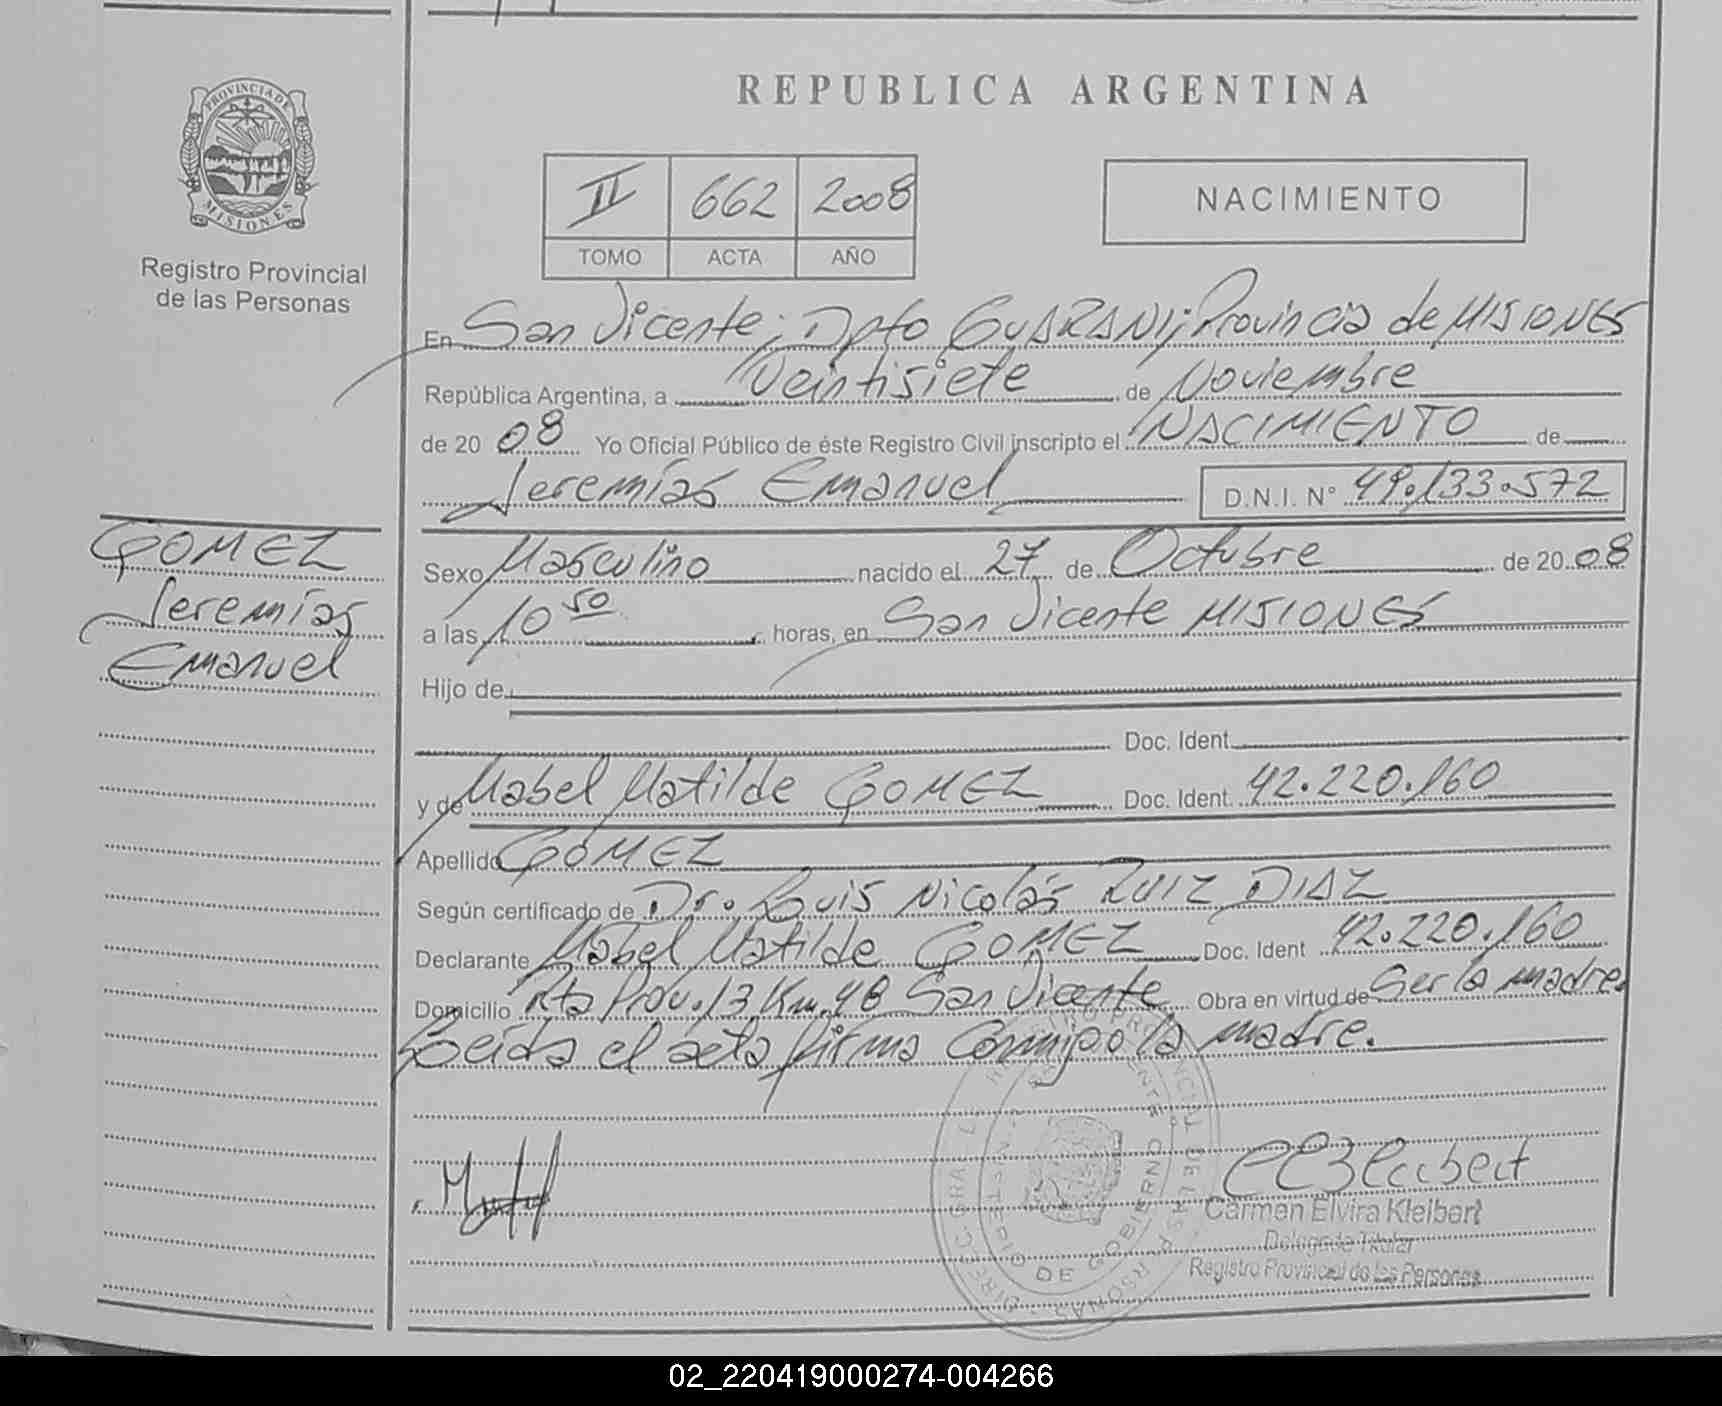 PROVINCIA DE MISIONES
Registro Provincial
de las Personas
REPUBLICA ARGENTINA
II 662 2008
TOMO ACTA AÑO
NACIMIENTO
En San Vicente; Dpto GUARANI; Provincia de MISIONES
República Argentina, a Veintisiete de Noviembre
de 20 08 Yo Oficial Público de éste Registro Civil inscripto el NACIMIENTO de
Jeremías Emanuel D.N.I. N° 49.133.572
GOMEZ
Jeremías
Emanuel
Sexo Masculino nacido el 27 de Octubre de 20 08
a las 10 50 horas, en San Vicente MISIONES
Hijo de
Doc. Ident.
y de Mabel Matilde GOMEZ Doc. Ident. 42.220.160
Apellido GOMEZ
Según certificado de Dr. Luis Nicolás RUIZ DIAZ
Declarante Mabel Matilde GOMEZ Doc. Ident 42.220.160
Domicilio Rta Prov. 13 Km. 48 San Vicente Obra en virtud de Ser la madre.
Leída el acta firma Conmigo la madre.
Carmen Elvira Kleibert
Delegada Titular
Registro Provincial de las Personas
02_220419000274-004266